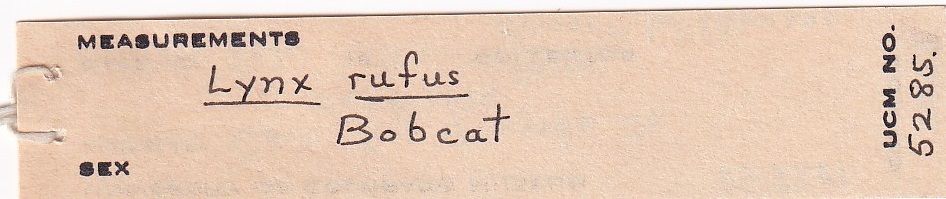 MEASUREMENTS
Lynx rufus
Bobcat
SEX
UCM NO.
5285.